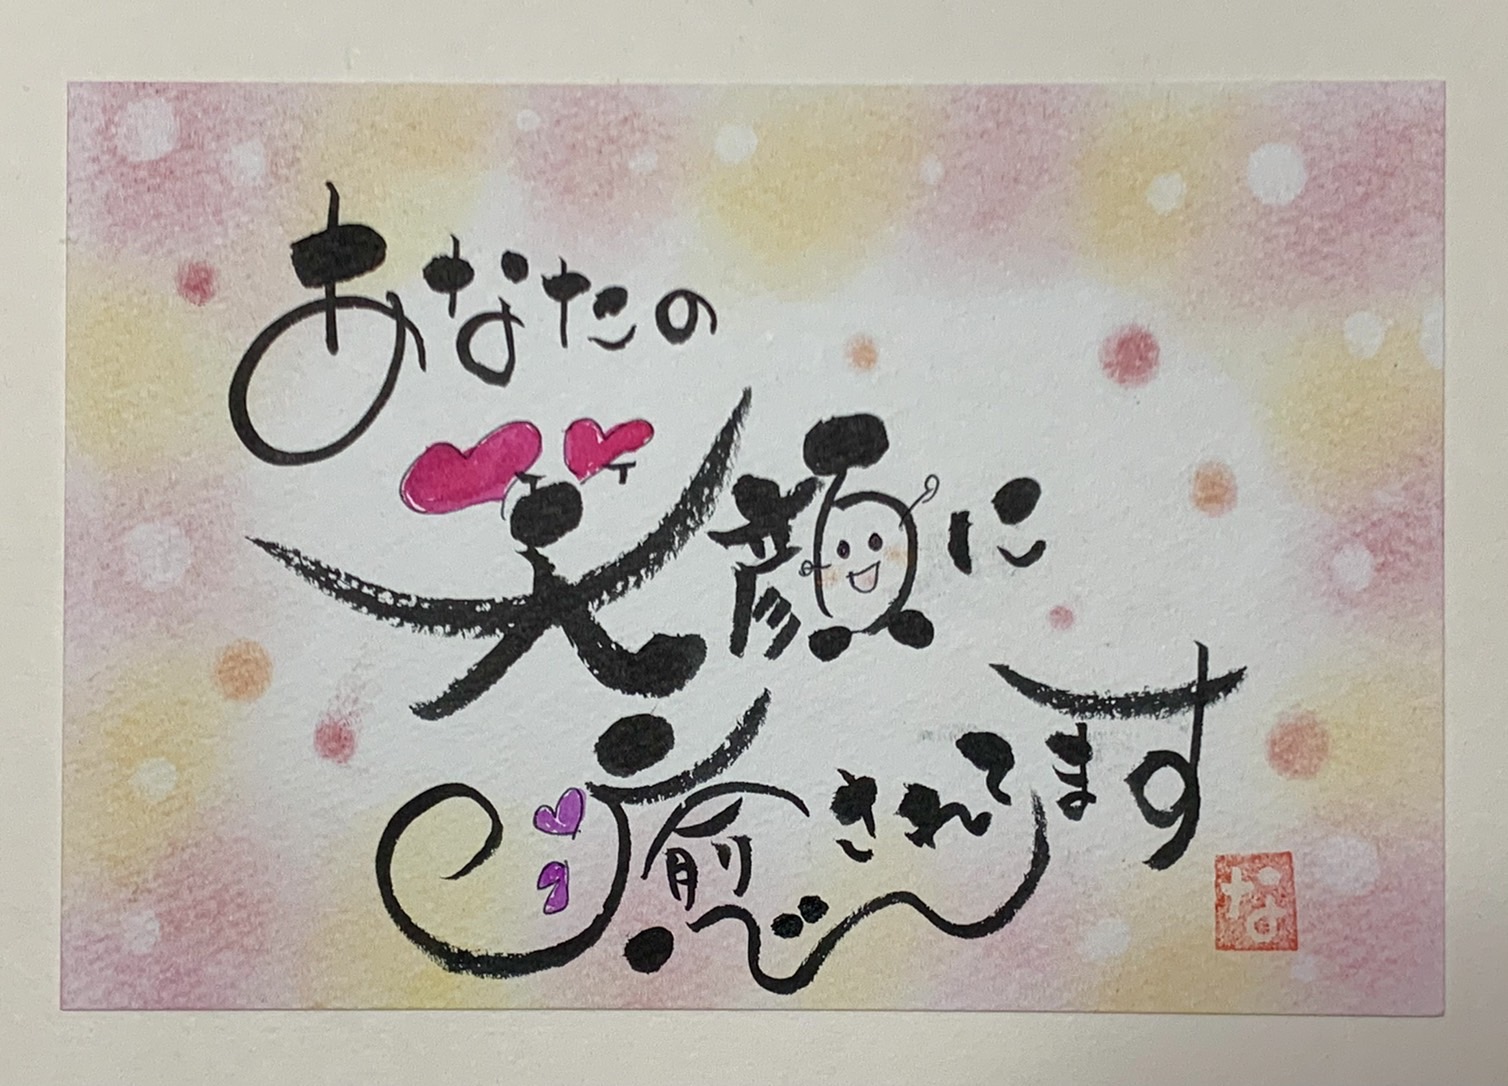 あなたの
笑顔に
癒されてます
な